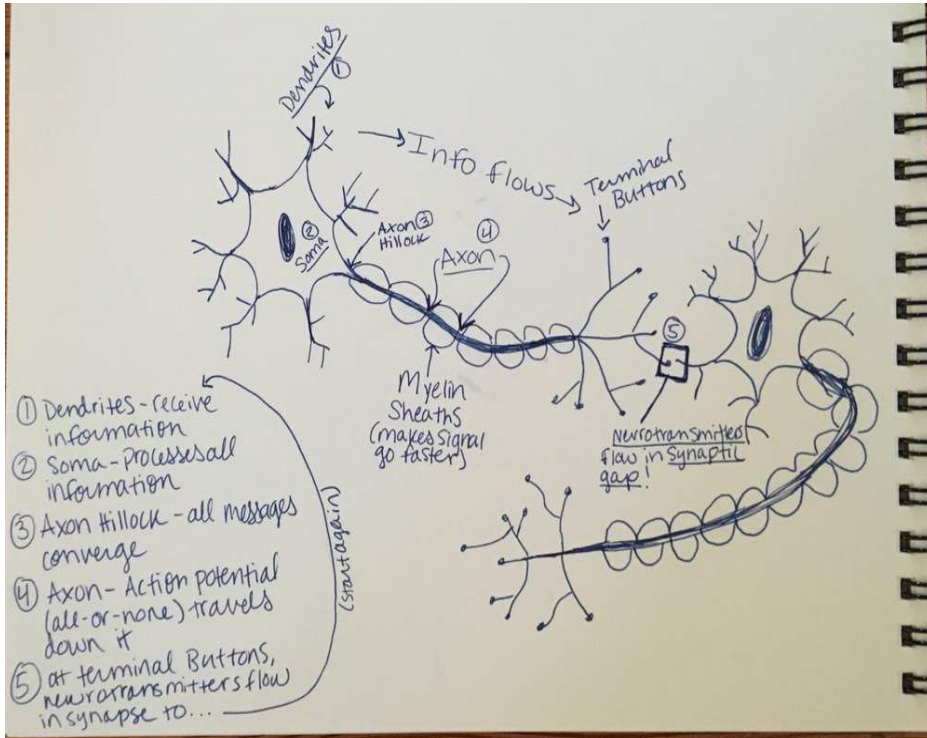 Dendrites
①
→ Info flows →
Terminal
Buttons
② 
Soma
Axon ③
Hillock
④
Axon
Myelin
Sheaths
(makes signal
go faster)
⑤
Neurotransmitters
flow in Synaptic
gap!
① Dendrites - receive
information
② Soma - processes all
information
③ Axon Hillock - all messages
converge
④ Axon - Action potential
(all-or-none) travels
down it
⑤ at terminal Buttons,
neurotransmitters flow
in synapse to...
(start again)